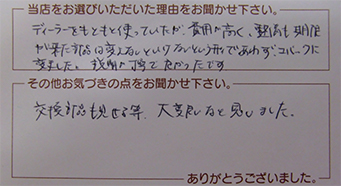 当店をお選びいただいた理由をお聞かせ下さい。
ディーラーをもともと使っていたが、費用が高く、整備も期限
が来た部品は変えないといけないという形であわず、コバックに
変えました。説明が丁寧でよかったです
その他お気づきの点をお聞かせ下さい。
交換部品も見せる等、大変良いと思いました。
ありがとうございました。